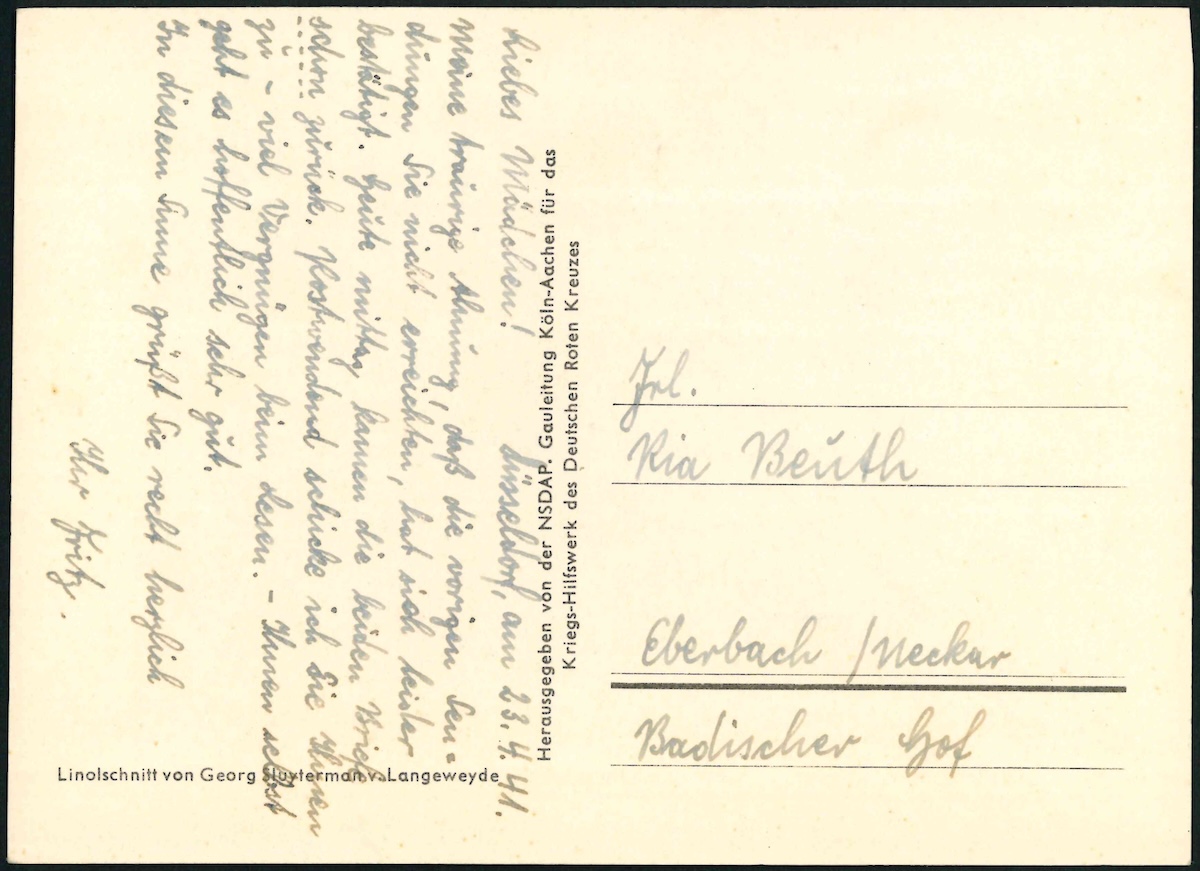 Liebes Mädchen! Düsseldorf, am 23.4.41.
Meine traurige Ahnung, daß die vorigen Sen-
dungen Sie nicht erreichten, hat sich leider
bestätigt. Heute mittag kamen die beiden Briefe
schon zurück. Postwendend schicke ich Sie Ihnen
zu - viel Vergnügen beim Lesen. - Ihnen selbst
geht es hoffentlich sehr gut.
In diesem Sinne grüßt Sie recht herzlich
Ihr Fritz.
Herausgegeben von der NSDAP. Gauleitung Köln-Aachen für das
Kriegs-Hilfswerk des Deutschen Roten Kreuzes
Linolschnitt von Georg Sluyterman v. Langeweyde
Frl.
Ria Beuth
Eberbach / Neckar
Badischer Hof